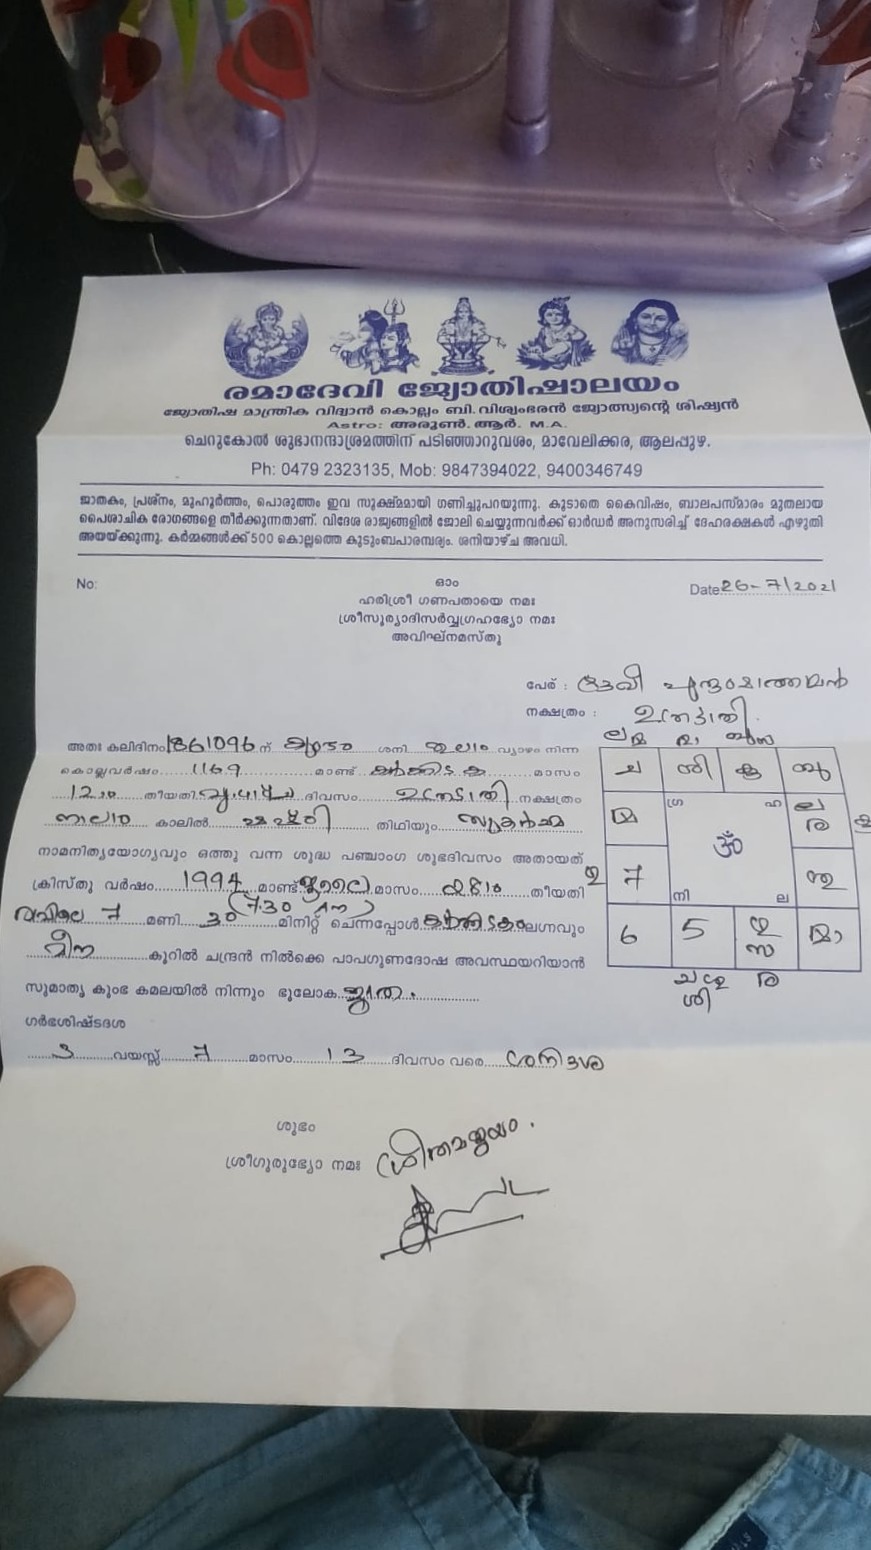 രമാദേവി ജ്യോതിഷാലയം
ജ്യോതിഷ മാന്ത്രിക വിദ്വാൻ കൊല്ലം ബി.വിശ്വംഭരൻ ജ്യോത്സ്യന്റെ ശിഷ്യൻ
Astro: അരുൺ.ആർ. M.A.
ചെറുകോൽ ശുഭാനന്ദാശ്രമത്തിന് പടിഞ്ഞാറുവശം, മാവേലിക്കര, ആലപ്പുഴ.
Ph: 0479 2323135, Mob: 9847394022, 9400346749
ജാതകം, പ്രശ്നം, മുഹൂർത്തം, പൊരുത്തം ഇവ സൂക്ഷ്മമായി ഗണിച്ചുപറയുന്നു. കൂടാതെ കൈവിഷം, ബാലപസ്മാരം മുതലായ
പൈശാചിക രോഗങ്ങളെ തീർക്കുന്നതാണ്. വിദേശ രാജ്യങ്ങളിൽ ജോലി ചെയ്യുന്നവർക്ക് ഓർഡർ അനുസരിച്ച് ദേഹരക്ഷകൾ എഴുതി
അയയ്ക്കുന്നു. കർമ്മങ്ങൾക്ക് 500 കൊല്ലത്തെ കുടുംബപാരമ്പര്യം. ശനിയാഴ്ച അവധി.
No:
ഓം
Date 26-7/2021
ഹരിശ്രീ ഗണപതായെ നമഃ
ശ്രീസൂര്യാദിസർവ്വഗ്രഹഭ്യോ നമഃ
അവിഘ്നമസ്തു
പേര് :
നക്ഷത്രം : ഉത്രട്ടാതി.
അതഃ കലിദിനം 1861096 ന് ശനി വ്യാഴം നിന്ന
കൊല്ലവർഷം 1169 മാണ്ട് കർക്കിടക മാസം
12ാം തീയതി വ്യാഴാഴ്ച ദിവസം ഉത്രട്ടാതി നക്ഷത്രം
നാലാം കാലിൽ തിഥിയും സുകർമ്മ
നാമനിത്യയോഗ്യവും ഒത്തു വന്ന ശുദ്ധ പഞ്ചാംഗ ശുഭദിവസം അതായത്
ക്രിസ്തു വർഷം 1994 മാണ്ട് ജൂലൈ മാസം 28ാം തീയതി
രാവിലെ 7 മണി 30 (7.30 AM) മിനിറ്റ് ചെന്നപ്പോൾ കർക്കിടകം ലഗ്നവും
മീന കൂറിൽ ചന്ദ്രൻ നിൽക്കെ പാപഗുണദോഷ അവസ്ഥയറിയാൻ
സുമാതൃ കുംഭ കമലയിൽ നിന്നും ഭൂലോക ജാത.
ഗർഭശിഷ്ടദശ
3 വയസ്സ് 7 മാസം 13 ദിവസം വരെ ശനിദശ
ച ശി കു ബു
മ ഗ്ര ഹ ല ര
ഓം
7 നി ല ശു
6 5 വ്യ സ മാ
ശുഭം
ശ്രീഗുരുഭ്യോ നമഃ